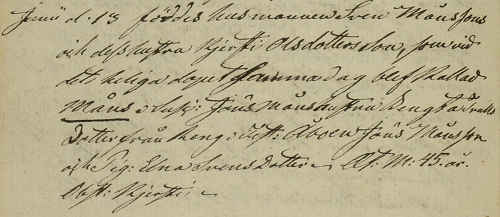 Junii d. 13 föddes husmannen Sven Månssons
och dess hustru Kjersti Olsdotters Son, som vid
det heliga dopet samma dag blef kallad
Måns, Susc: Jöns Månss hustru Bengta Trulls
Dotter från Leng: Test: Åboen Jöns Månsson
och Pig: Elna Svens Dotter. At: M: 45. år.
Obst: Kjersti.